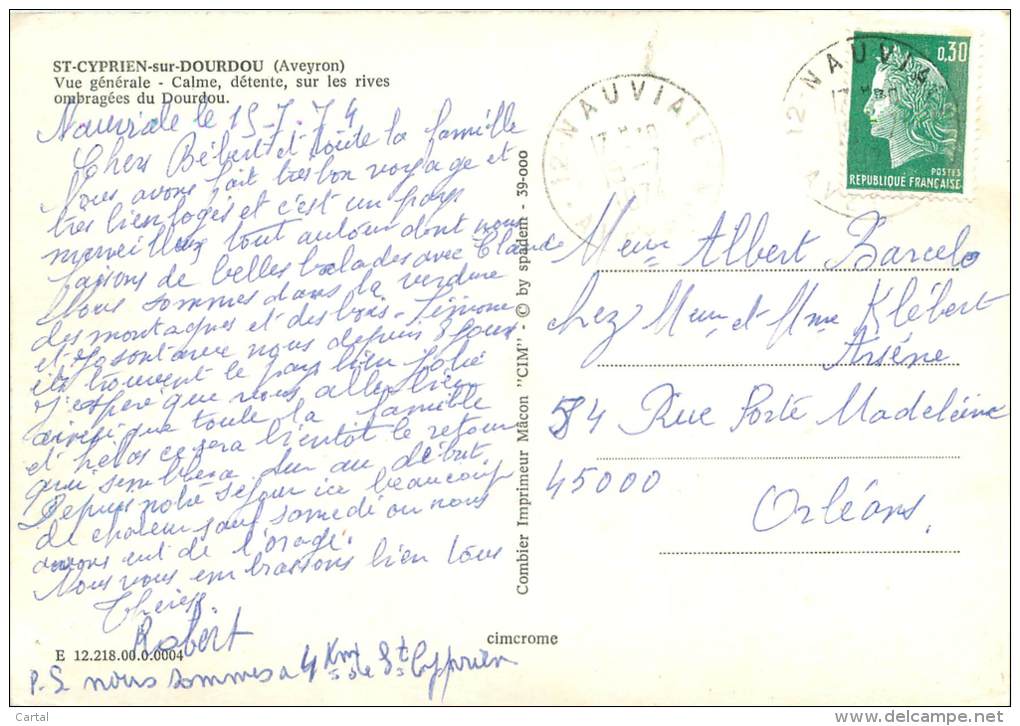 ST-CYPRIEN-sur-DOURDOU (Aveyron)
Vue générale - Calme, détente, sur les rives
ombragées du Dourdou.
Nauviale le 15.7.74
Chers Bébert et toute la famille
Nous avons fait tres bon voyage et
tres bien logés et c'est un pays
merveilleux tout autour dont nous
faisons de belles balades avec Claude
Nous sommes dans la verdure
des montagnes et des bois. Simone
et sont avec nous depuis 8 jours
ils trouvent le pays bien joli
J'espère que vous allez bien
ainsi que toute la famille
et helas ce sera bientot le retour
qui semblera dur au début
Depuis notre séjour ici beaucoup
de chaleur sauf samedi ou nous
avons eut de l'orage.
Nous vous embrassons bien tous
Thérèse.
Robert
P.S nous sommes a 4 Km de St Cyprien
E 12.218.00.0.0004
cimcrome
Combier Imprimeur Mâcon "CIM" - © by spadem - 39-000
12 NAUVIALE
12 NAUVIA
0,30
POSTES
REPUBLIQUE FRANÇAISE
Meur Albert Barcelo
chez Meur et Mme Klébert
Arsène
84 Rue Porte Madeleine
45000
Orléans.
Cartal
www.delcampe.net